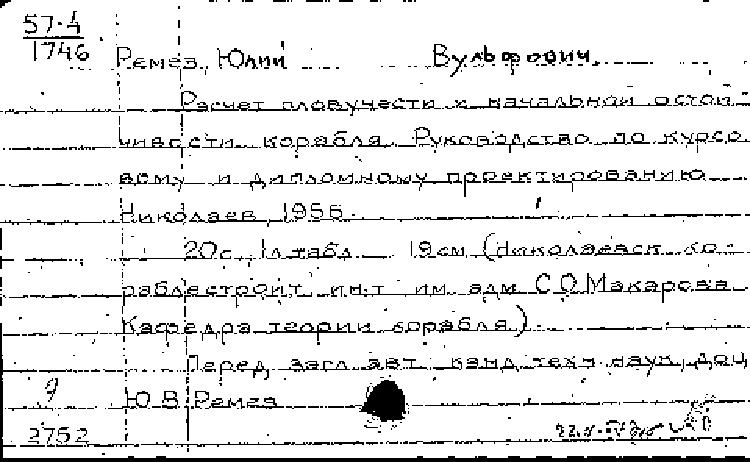 57-4
1746
Ремез, Юлий Вульфович.
Расчет пловучести и начальной остой-
чивости корабля. Руководство по курсо-
вому и дипломному проектированию
Николаев, 1956.
20с., 1л табл. 19см (Николаевск. ко-
раблестроит. ин-т им. адм. С.О.Макарова
Кафедра теории корабля)
Перед загл. авт. канд. техн. наук, доц.
Ю.В. Ремез
2752